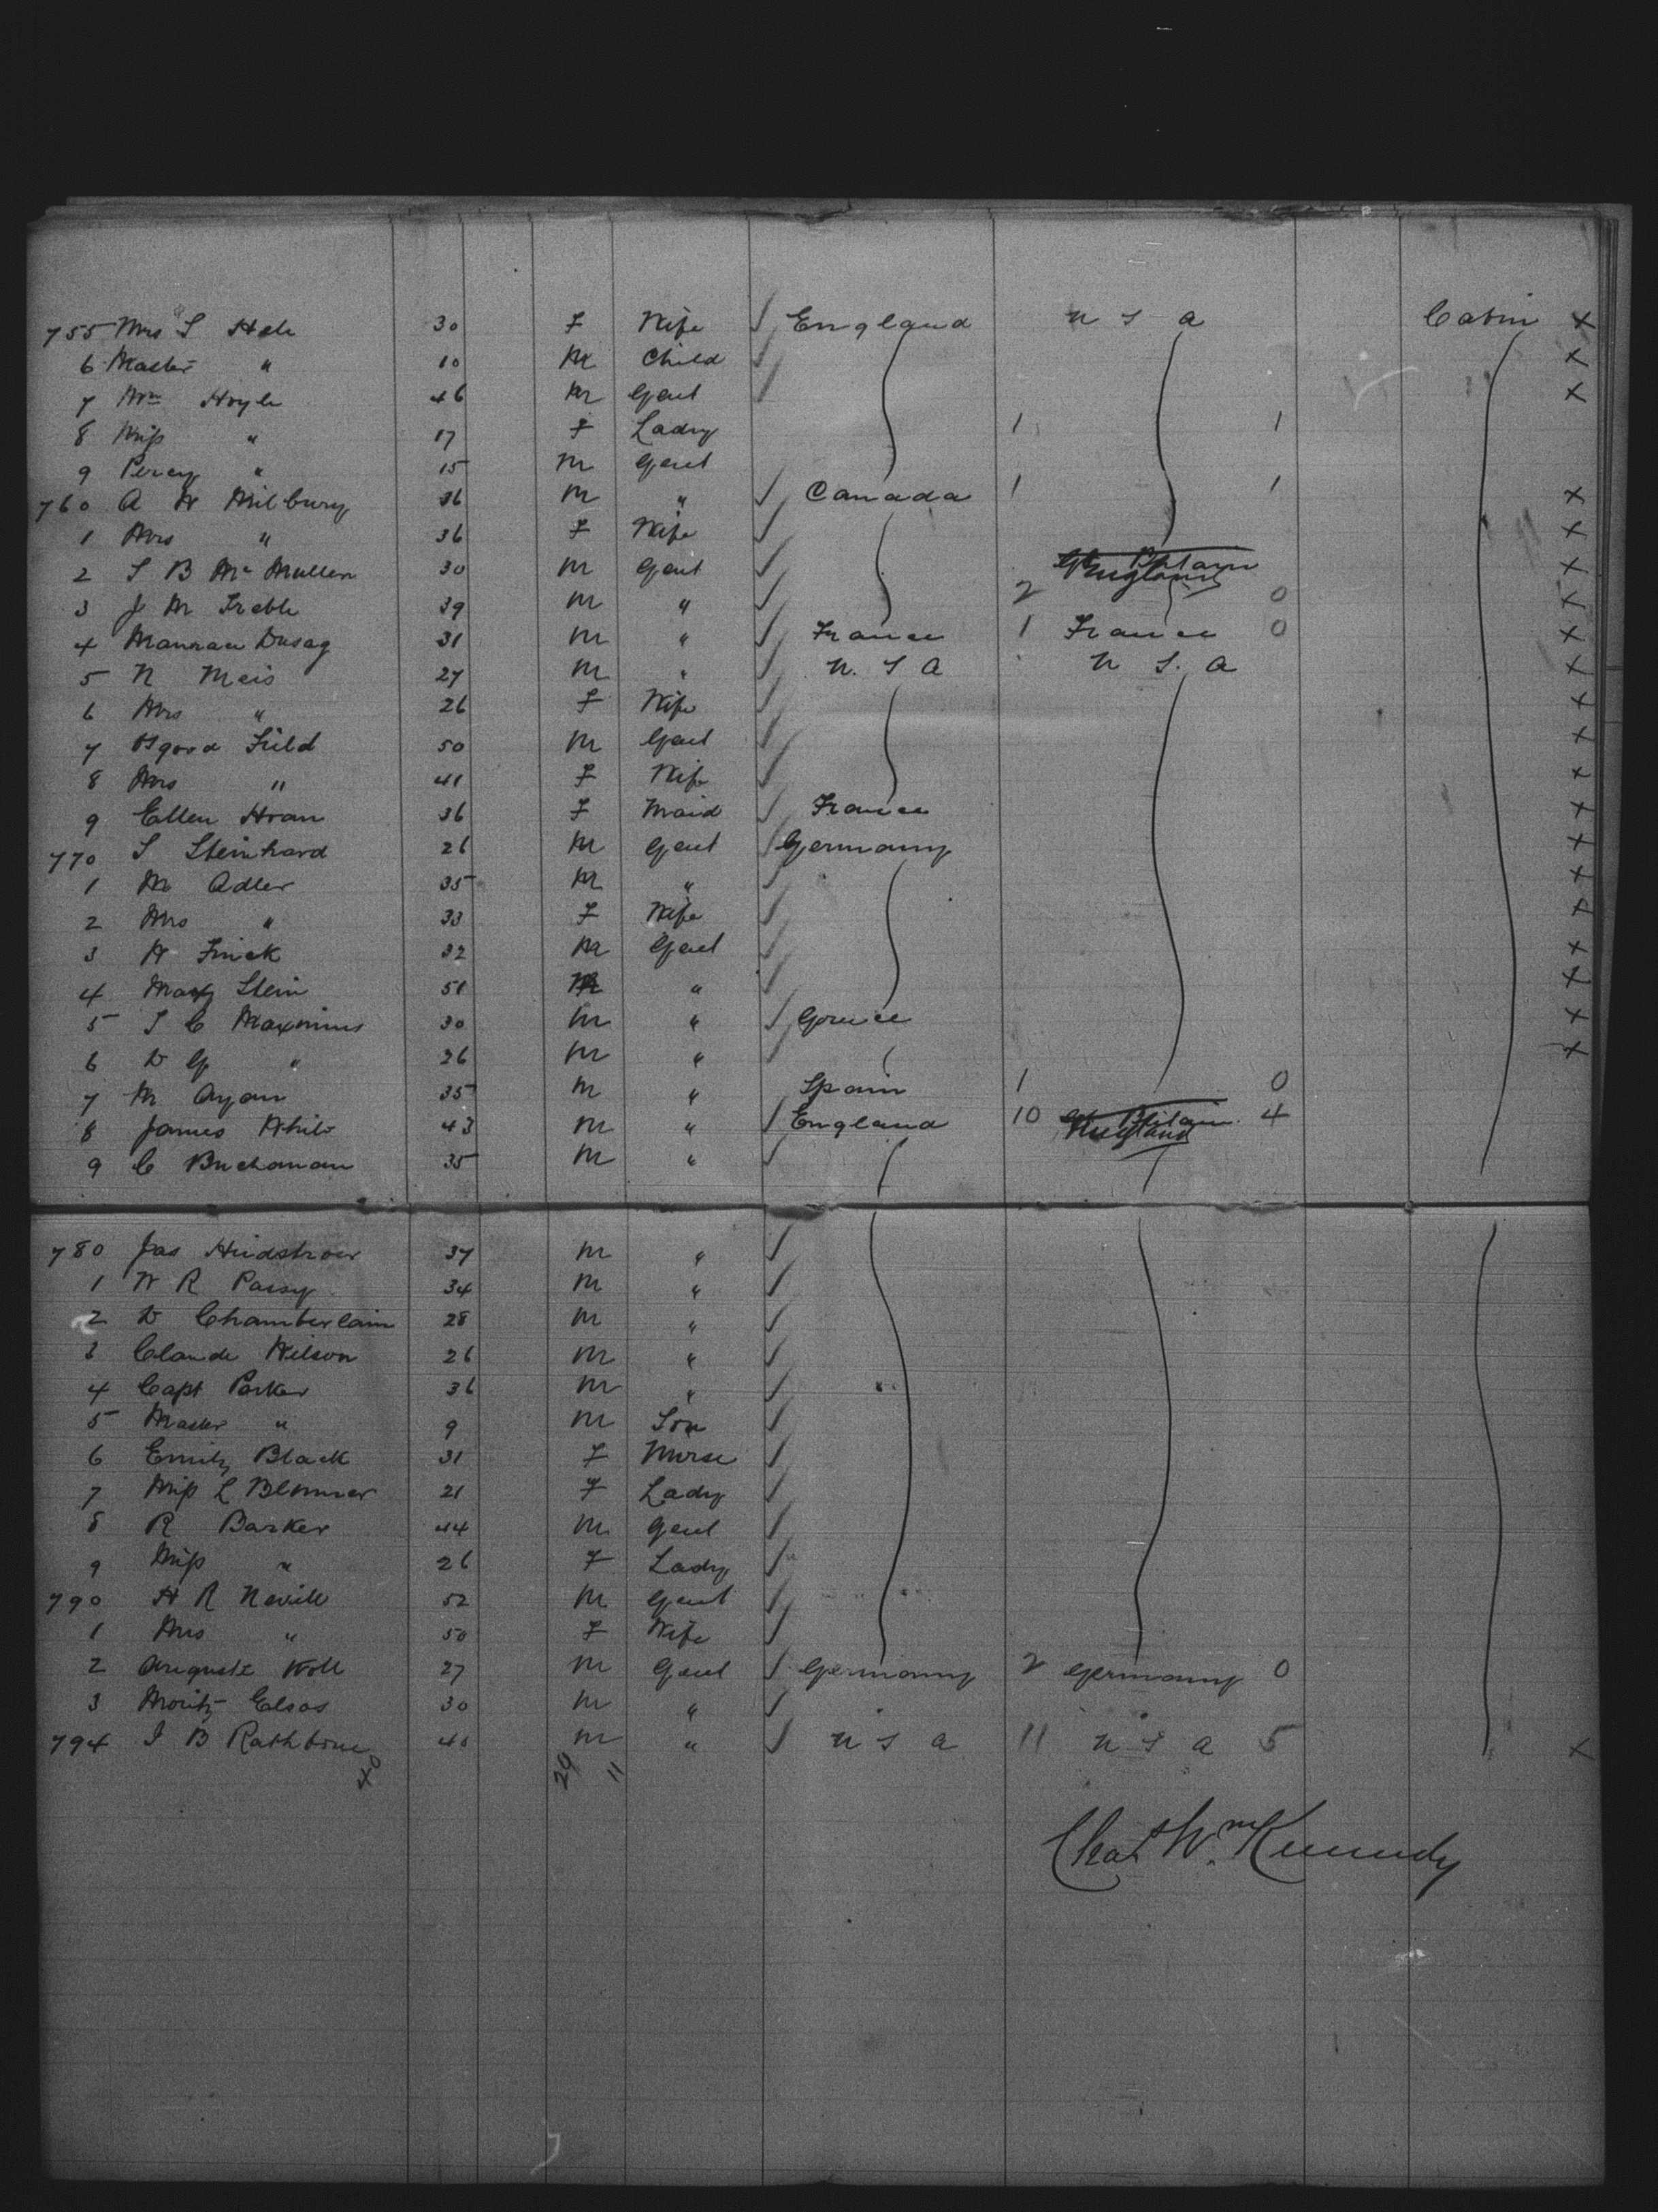 755 Mrs S Hele 30 F Wife England U S A Cabin X
6 Master " 10 M Child X
7 Wm Hoyle 46 M Gent X
8 Miss " 17 F Lady 1 1
9 Percy " 15 M Gent
760 A W Milbury 36 M " Canada 1 1 X
1 Mrs " 36 F Wife X
2 S B Mc Mullen 30 M Gent Gt Britain England X
3 J M Treble 39 M " 2 0 X
4 Dusag 31 M " France 1 France 0 X
5 N Meis 27 M " U. S A U S. A X
6 Mrs " 26 F Wife X
7 Field 50 M Gent X
8 Mrs " 41 F Wife X
9 Ellen Horan 36 F Maid France X
770 S Steinhard 26 M Gent Germany X
1 M Adler 35 M " X
2 Mrs " 33 F Wife X
3 H Finck 32 M Gent X
4 Stein 51 M " X
5 Maxmins 30 M " Greece X
6 D G " 26 M " X
7 M Ayan 35 M " Spain 1 0
8 James White 43 M " England 10 Gt Britain England 4
9 C Buchanan 35 M "
780 Jas 37 M "
1 W R Passy 34 M "
2 D Chamberlain 28 M "
3 Claude Wilson 26 M "
4 Capt Parker 36 M "
5 Master " 9 M Son
6 Emily Black 31 F Nurse
7 Miss L 21 F Lady
8 R Barker 44 M Gent
9 Miss " 26 F Lady
790 H R Nevill 52 M Gent
1 Mrs " 50 F Wife
2 Auguste 27 M Gent Germany 2 Germany 0
3 Moritz Elsas 30 M "
794 J B Rathbone 40 M " U S A 11 U S A 5 X
40 29 11
Chas Wm Kennedy